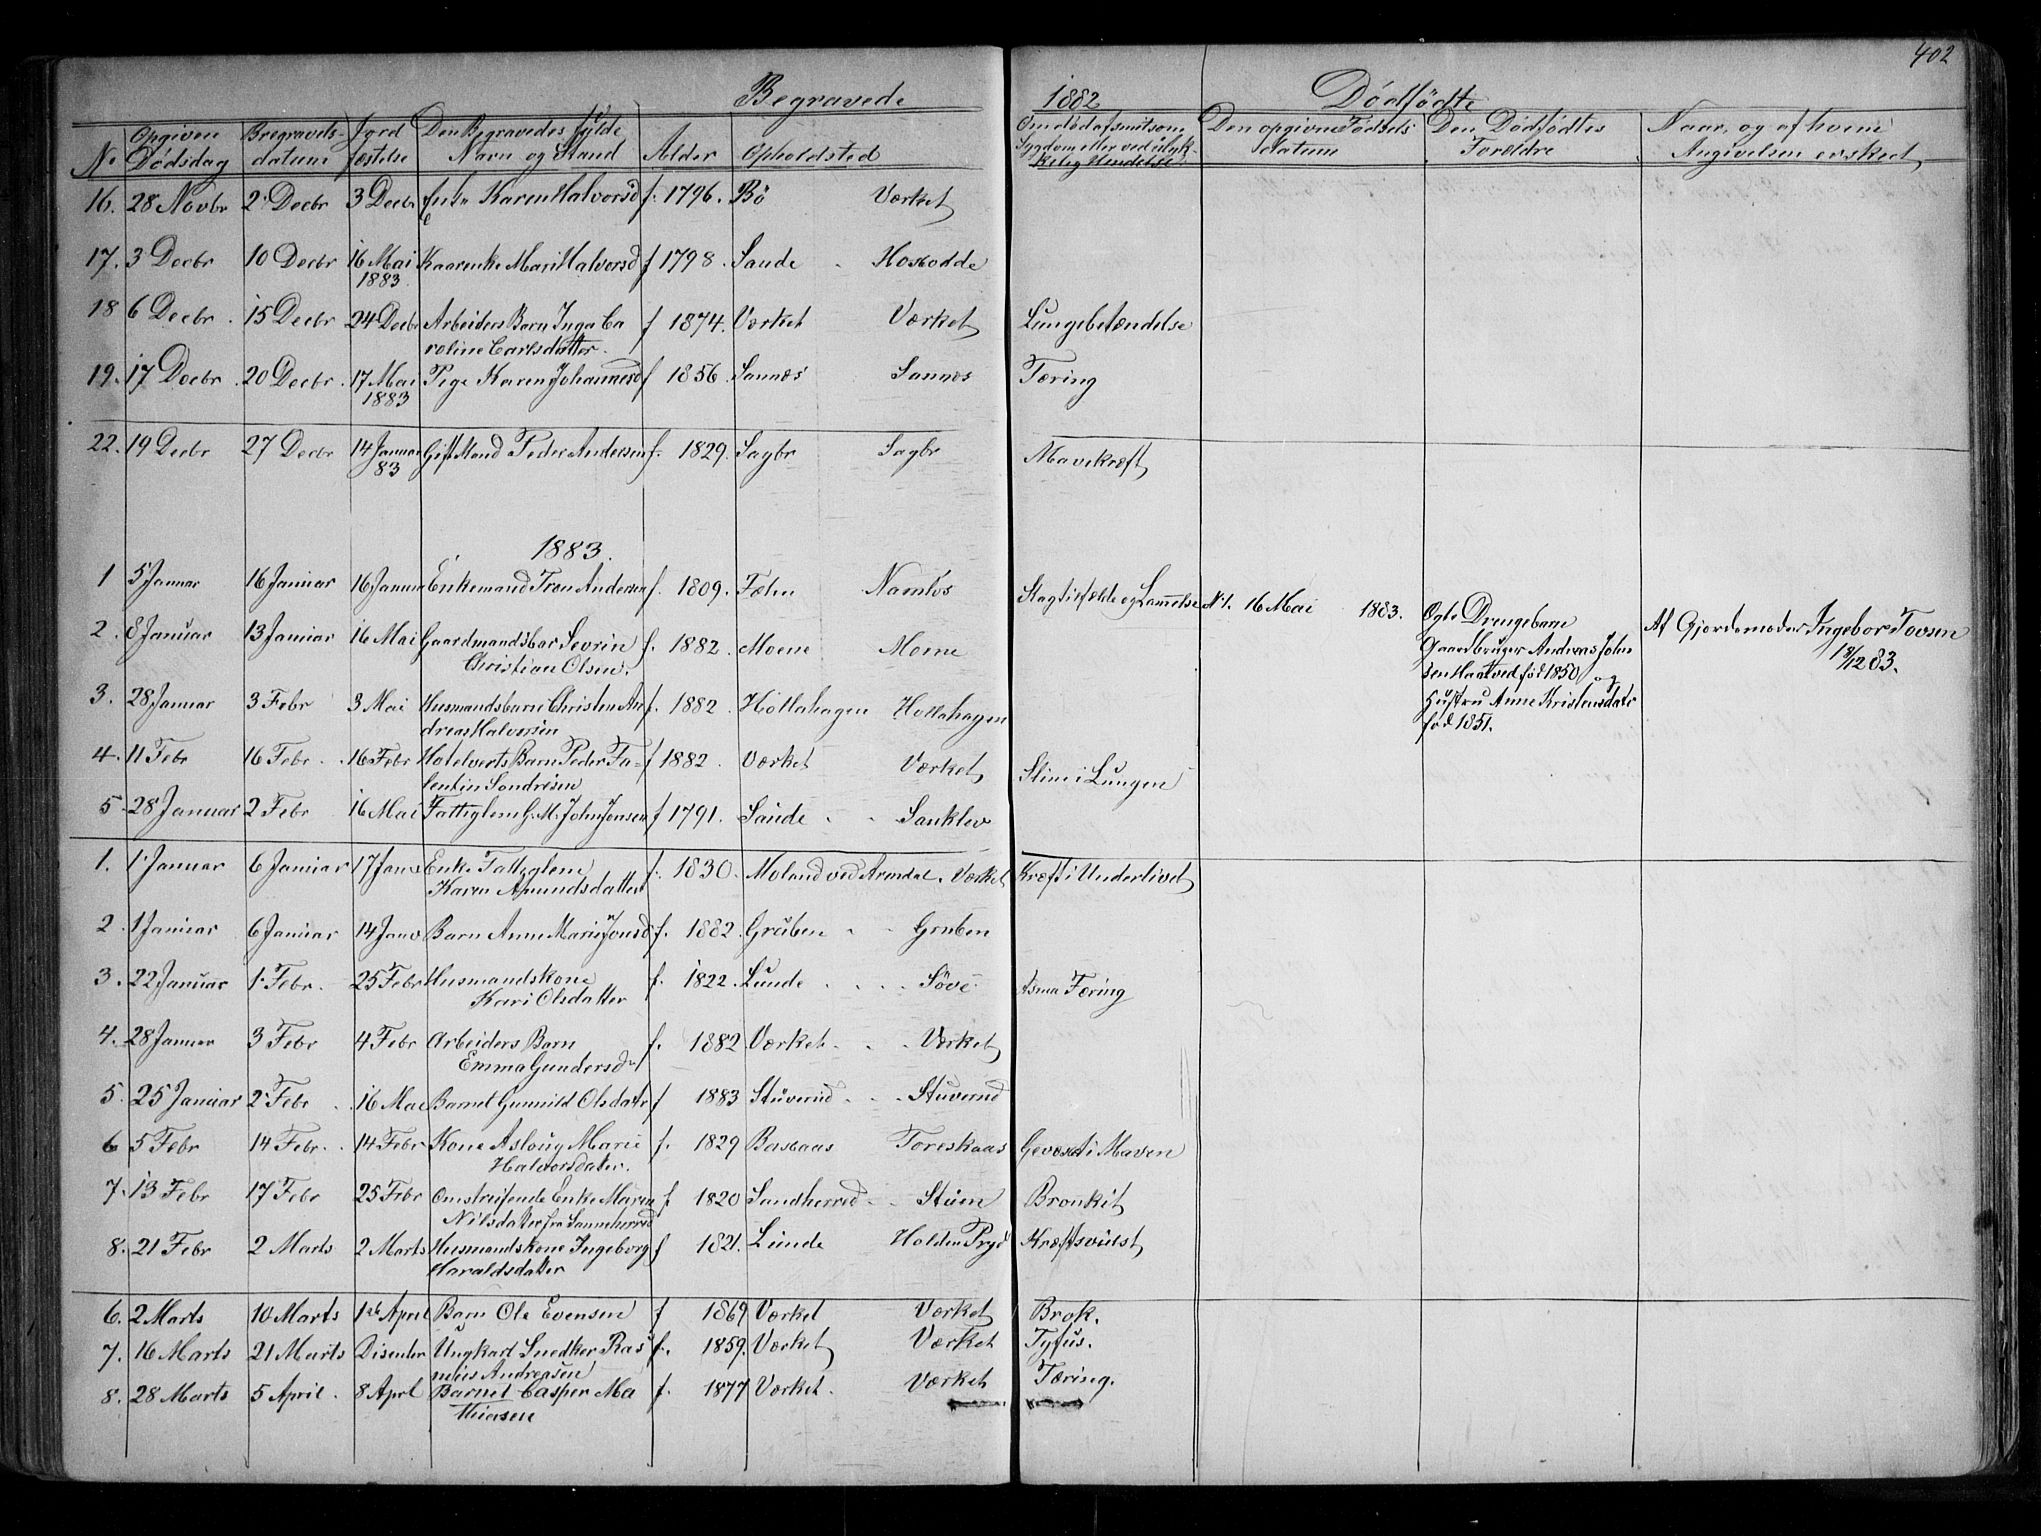 402
Begravede 1882 Dödfödte
No Opgiven Dödsdag Begravels-datum Jord fæstelse Den Begravedes fulde Navn og Stand Alder Opholdsted Om död af smitsom Sygdom eller ved ulyk-kelig Hendelse Den opgivne Födsels datum Den Dödfödtes Forældre Naar, og af hvem Angivelsen er skeet
16. 28 Novbr 2 Decbr 3 Decbr Enke Karen Halvorsd f. 1796. Bö Værket
17. 3 Decbr 10 Decbr 16 Mai Kaarenke Mari Halvorsd f 1798. Saude
1883.
18 6 Decbr. 15 Decbr 24 Decbr Arbeiders Barn Inga Ca f 1874. Værket Værket Lungebetændelse
roline Carlsdatter.
19. 17 Decbr. 20 Decbr. 17 Mai Pige Karen Johannesd f 1856. Sannæs Sannæs Tæring
1883
22. 19 Decbr 27 Decbr 14 Januar Gift Mand Peder Andersen f. 1829. Sagbr Sagbr Mavekræft
83
1883.
1 5 Januar 16 Januar 16 Januar Enkemand Tron Andersen f. 1809. Fæhn Namlös Slagtilfælde og Lammelse No 1. 16 Mai 1883. Ægte Drengebarn
2. 8 Januar 13 Januar 16 Mai Gaardmandsbar Sevrin f. 1882. Moene Moene Gaardbruger Andreas John Af Gjordemoder Ingebor Tovsen
Christian Olsen. sen Haatved föd 1850 og 18/12 83.
3. 28 Januar 3 Febr 3 Mai Husmandsbarn Christen An f. 1882. Hollahagen Hollahagen Hustru Anne Kristensdatr
dreas Halvorsen föd 1851.
4. 11 Febr 16 Febr. 16 Febr Hotelverts Barn Peder Fa- f 1882. Værket Værket Sliim i Lungen
lentin Sondresen
5. 28 Januar 2 Febr 16 Mai Fattiglem G. M. John Jonsen f 1791. Saude Sanklev
1. 1 Januar 6 Januar 17 Janv Enke Fattiglem f. 1830. Moland ved Arendal. Værket Kræft i Underlivet
Karen Amundsdatter
2. 1 Januar 6 Januar 14 Janv Barn Anne Marie Jonsd f. 1882. Gruben Gruben
3. 22 Januar 1 Febr. 25 Febr Husmandskone f. 1822. Lunde Söve Asma Tæring
Kari Olsdatter
4. 28 Januar 3 Febr 4 Febr Arbeiders Barn f. 1882 Værket Værket
Emma Gundersdr
5. 25 Januar 2 Febr. 16 Mai Barnet Gunnild Olsdatr f 1883 Stuverud Stuverud
6 5 Febr 14 Febr. 14 Febr Kone Aslaug Marie f. 1829 Basbaas Toreskaas Gevæxt i Maven
Halvorsdater.
7. 13 Febr 17 Febr 25 Febr Omstreifende Enke Maren f 1820 Sandherred Stuen Bronkit
Nilsdater fra Sanneherred
8. 21 Febr 2 Marts 2 Marts Husmandskone Ingeborg f 1821. Lunde Holden Prgd Kræftsvulst
Haraldsdatter
6. 2 Marts 10 Marts 1ste April Barn Ole Evensen f 1869 Værket Værket Brok.
7. 16 Marts 21 Marts Disenter Ungkarl Snedker Ras f. 1859. Værket Værket Tyfus.
mus Andreasen
8. 28 Marts 5 April. 8 Aprl Barnet Casper Ma f. 1877 Værket. Værket Tæring.
thiasen